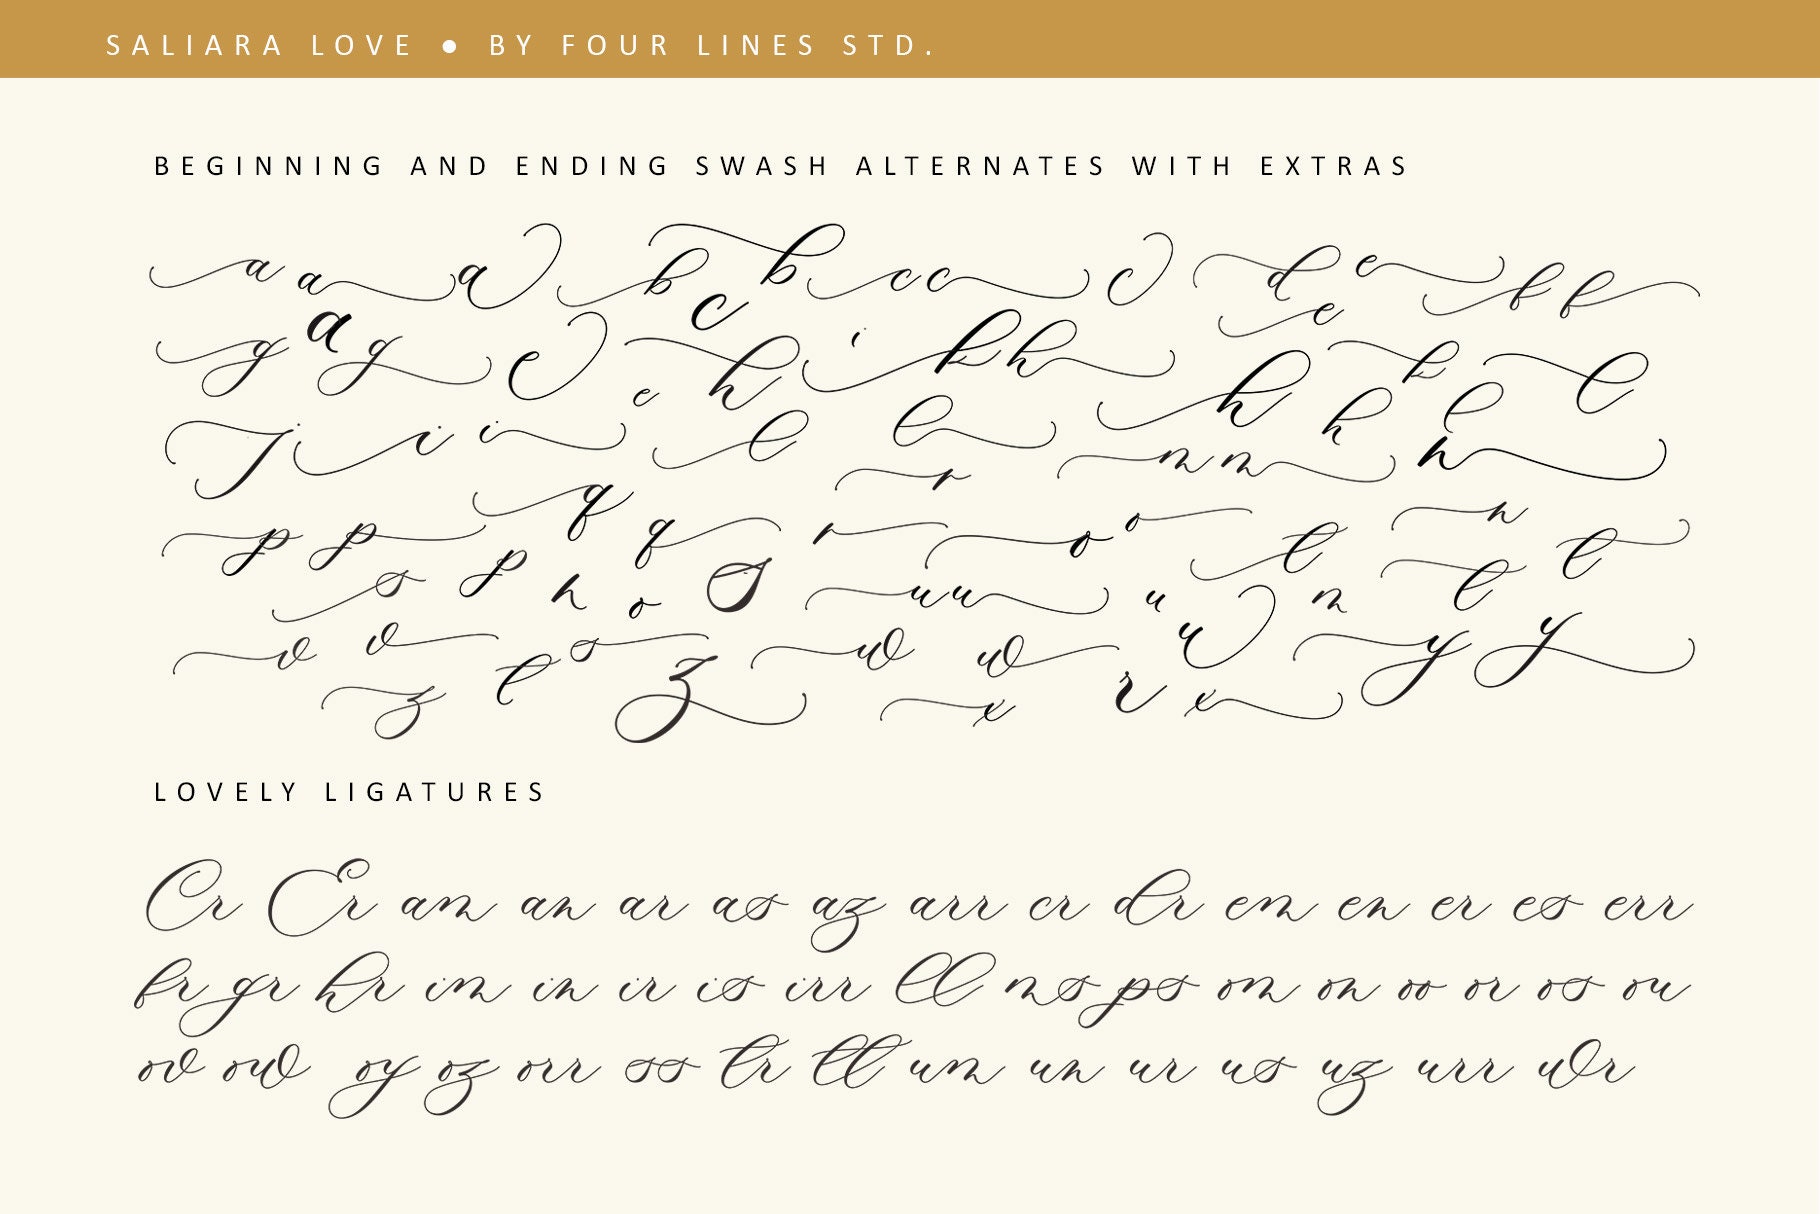 SALIARA LOVE ● BY FOUR LINES STD.
BEGINNING AND ENDING SWASH ALTERNATES WITH EXTRAS
a a a b b c c c d e f f
g a g e c e h i k h e h k l
j i i l l h h l
r m m h
p p q q r o o t n t
s p h o s u u u m t
v v t s z w w u y y
z x r x
LOVELY LIGATURES
Cr Er am an ar as az arr cr dr em en er es err
fr gr hr im in ir is irr ll ms ps om on oo or os ou
ov ow oy oz orr ss tr tt um un ur us uz urr wr